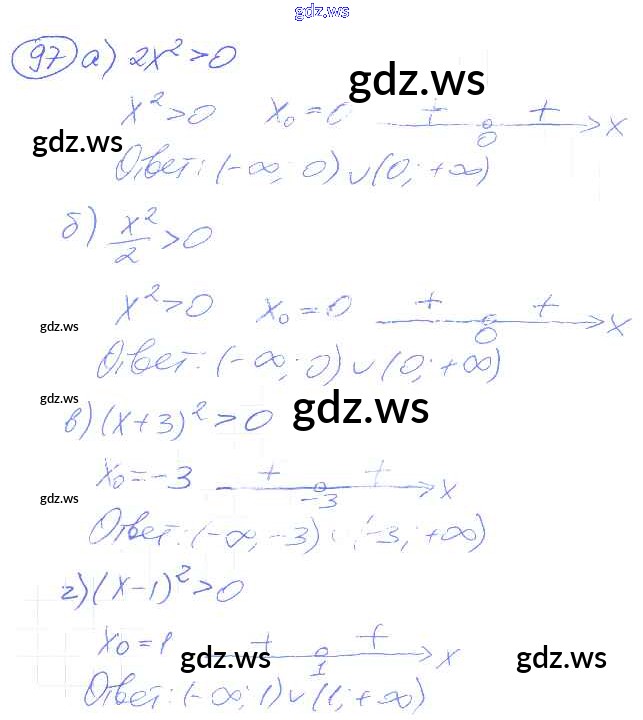 gdz.ws
97 а) 2x² > 0
gdz.ws
x² > 0 x₀ = 0 + + x
0
gdz.ws
Ответ: (-∞; 0) ∪ (0; +∞)
б) x²/2 > 0
x² > 0 x₀ = 0 + + x
0
gdz.ws
Ответ: (-∞; 0) ∪ (0; +∞)
gdz.ws
в) (x+3)² > 0
gdz.ws
x₀ = -3 + + x
-3
gdz.ws
Ответ: (-∞; -3) ∪ (-3; +∞)
г) (x-1)² > 0
x₀ = 1 + + x
1
gdz.ws
gdz.ws
Ответ: (-∞; 1) ∪ (1; +∞)